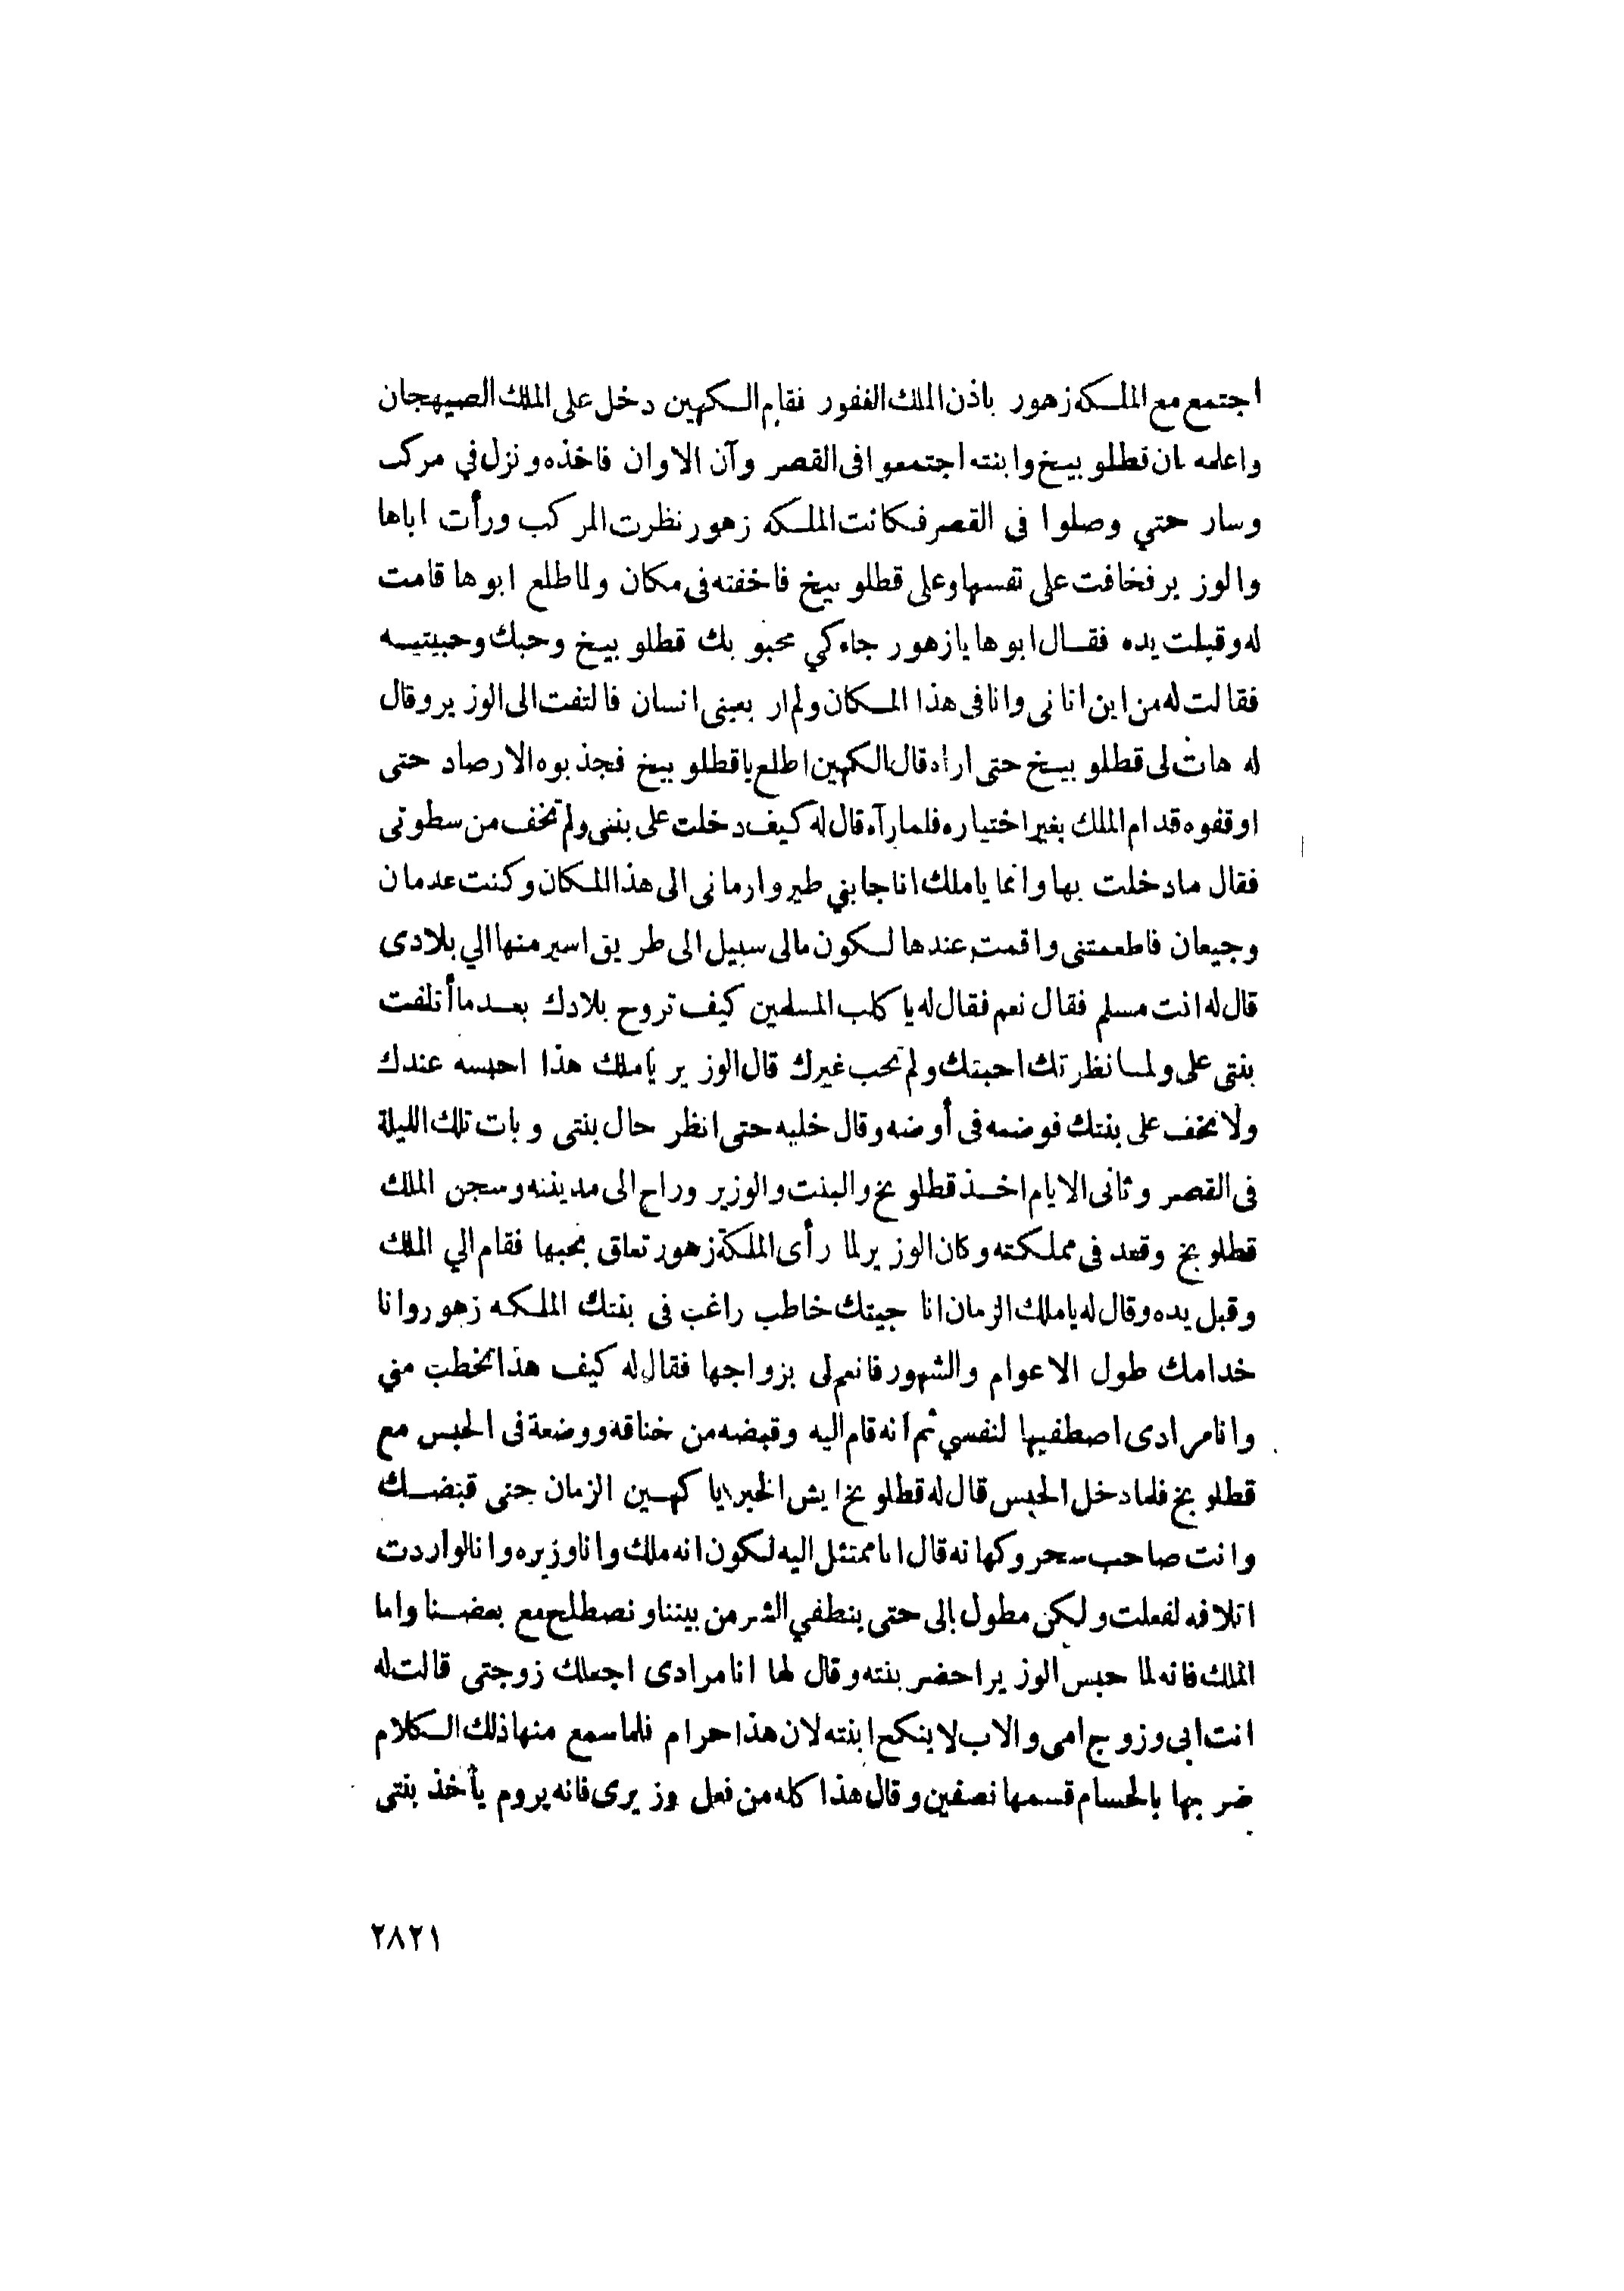 اجتمع مع الملكه زهور باذن الملك الغفور فقام الكهين دخل على الملك الصيهجان
واعلمه بان قطلو بيخ وابنته اجتمعوا فى القصر وآن الاوان فاخذه ونزل في مركب
وسار حتي وصلوا فى القصر فكانت الملكه زهور نظرت المركب ورأت اباها
والوزير فخافت على نفسها وعلى قطلو بيخ فاخفته فى مكان ولما طلع ابوها قامت
له وقبلت يده فقال ابوها يازهور جاء كي محبوبك قطلو بيخ وحبك وحبيتيه
فقالت له من اين اتانى وانا فى هذا المكان ولم ار بعينى انسان فالتفت الى الوزير وقال
له هات لى قطلو بيخ حتى اراه قال الكهين اطلع ياقطلو بيخ فجذبوه الارصاد حتى
اوقفوه قدام الملك بغير اختياره فلما رآه قال له كيف دخلت على بنتى ولم تخف من سطوتى
فقال ما دخلت بها وانما ياملك انا جابني طير وارمانى الى هذا المكان وكنت عدمان
وجيعان فاطعمتنى واقمت عندها لكون مالى سبيل الى طريق اسير منها الي بلادى
قال له انت مسلم فقال نعم فقال له يا كلب المسلمين كيف تروح بلادك بعد ما أتلفت
بنتى على ولما نظرتك احبتك ولم تحب غيرك قال الوزير ياملك هذا احبسه عندك
ولا تخف على بنتك فوضعه فى أوضه وقال خليه حتى انظر حال بنتى وبات تلك الليلة
فى القصر وثانى الايام اخذ قطلو بخ والبنت والوزير وراح الى مدينته وسجن الملك
قطلو بخ وقعد فى مملكته وكان الوزير لما رأى الملكة زهور تعلق بحبها فقام الي الملك
وقبل يده وقال له ياملك الزمان انا جيتك خاطب راغب فى بنتك الملكه زهور وانا
خدامك طول الاعوام والشهور فانعم لى بزواجها فقال له كيف هذا تخطب مني
وانا مرادى اصطفيها لنفسي ثم انه قام اليه وقبضه من خناقه ووضعة فى الحبس مع
قطلو بخ فلما دخل الحبس قال له قطلو بخ ايش الخبر يا كهين الزمان حتى قبضك
وانت صاحب سحر وكهانه قال انا ممتثل اليه لكون انه ملك وانا وزيره وانا لو اردت
اتلافه لفعلت ولكن مطول بالى حتى ينطفي الشر من بيننا ونصطلح مع بعضنا واما
الملك فانه لما حبس الوزير احضر بنته وقال لها انا مرادى اجعلك زوجتى قالت له
انت ابى وزوج امى والاب لا ينكح ابنته لان هذا حرام فلما سمع منها ذلك الكلام
ضربها بالحسام قسمها نصفين وقال هذا كله من فعل وزيرى فانه يروم يأخذ بنتى
٢٨٢١